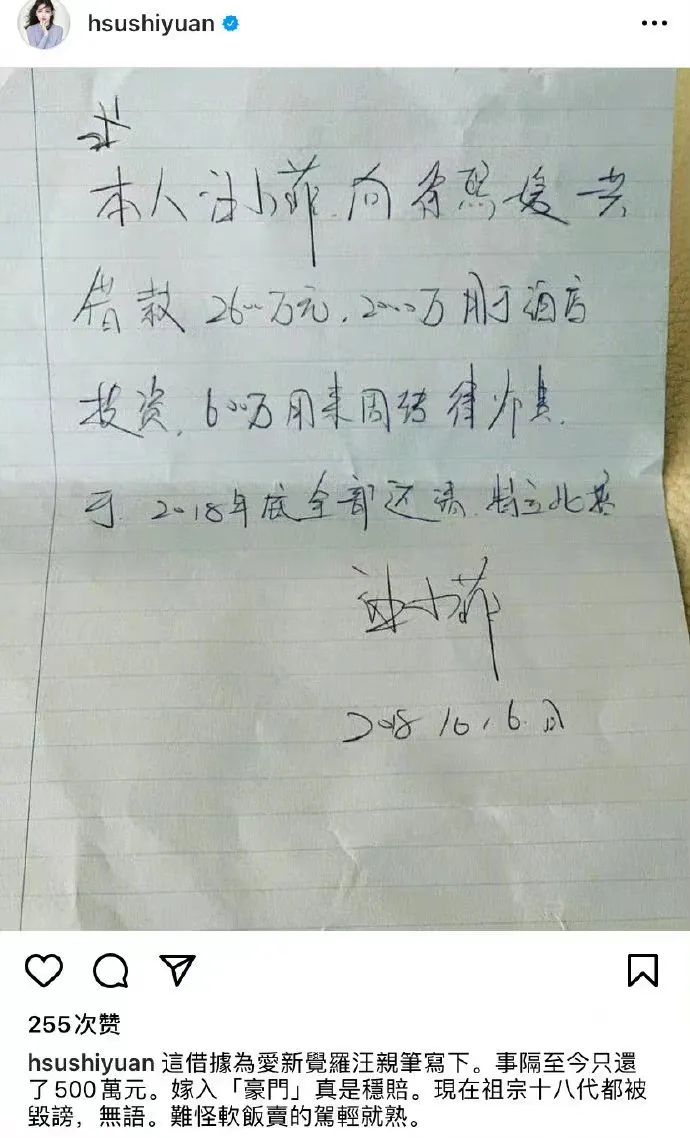 hsushiyuan
本人汪小菲.向徐熙媛共
借款 2600万元.2000万用于酒店
投资.600万用来周转律师费.
于.2018年底全部还清.特立此
汪小菲
2018 10.6.
255次赞
hsushiyuan 這借據為愛新覺羅汪親筆寫下。事隔至今只還
了500萬元。嫁入「豪門」真是穩賠。現在祖宗十八代都被
毀謗，無語。難怪軟飯賣的駕輕就熟。